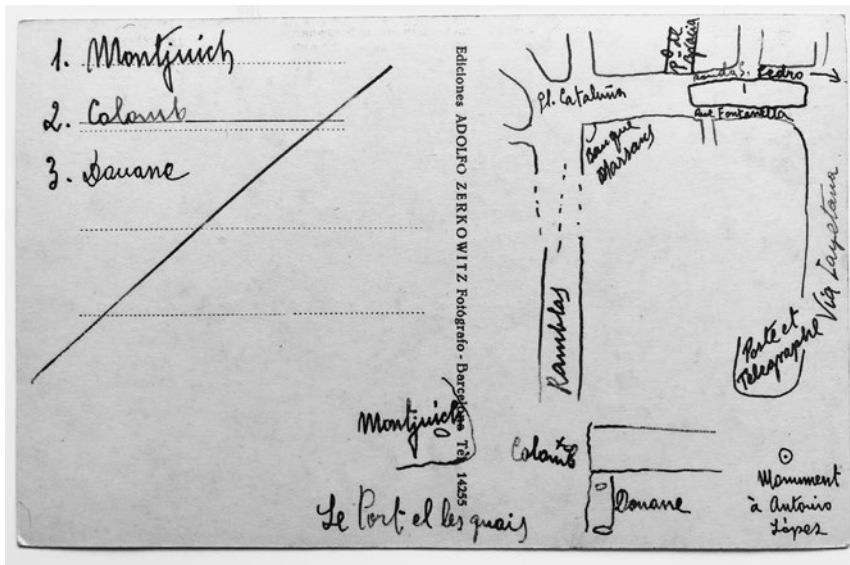 1. Montjuich
2. Colomb
3. Douane
Ediciones ADOLFO ZERKOWITZ Fotógrafo - Barcelona Tel. 14255
P.º de
Gracia
Ronda S. Pedro
Pl. Cataluña
Rue Fontanella
Banque
Marsans
Via Layetana
Ramblas
Poste et
Télégraphe
Montjuich
Colomb
Douane
Monument
à Antonio
López
Le Port et les quais